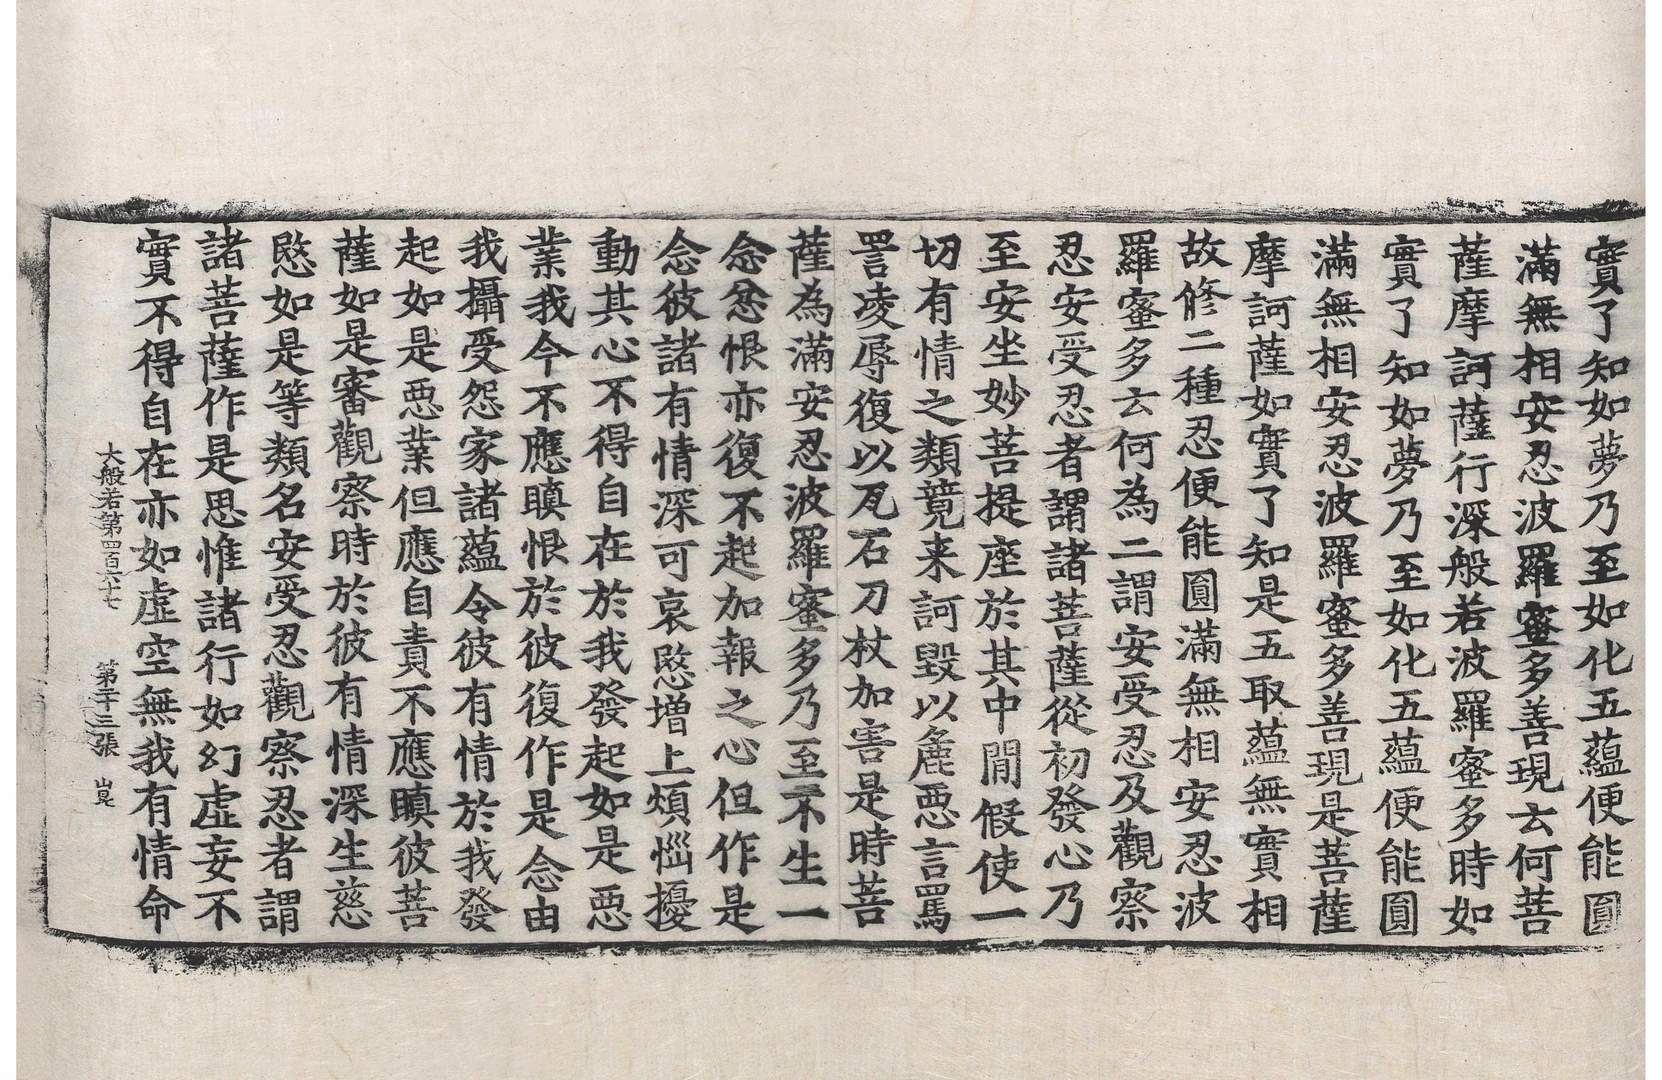 實了知如夢乃至如化五蘊便能圓
滿無相安忍波羅蜜多善現云何菩
薩摩訶薩行深般若波羅蜜多時如
實了知如夢乃至如化五蘊便能圓
滿無相安忍波羅蜜多善現是菩薩
摩訶薩如實了知是五取蘊無實相
故修二種忍便能圓滿無相安忍波
羅蜜多云何為二謂安受忍及觀察
忍安受忍者謂諸菩薩從初發心乃
至安坐妙菩提座於其中閒假使一
切有情之類竟来訶毀以麁惡言罵
詈凌辱復以瓦石刀杖加害是時菩
薩為滿安忍波羅蜜多乃至不生一
念忿恨亦復不起加報之心但作是
念彼諸有情深可哀愍增上煩惱擾
動其心不得自在於我發起如是惡
業我今不應瞋恨於彼復作是念由
我攝受怨家諸蘊令彼有情於我發
起如是惡業但應自責不應瞋彼菩
薩如是審觀察時於彼有情深生慈
愍如是等類名安受忍觀察忍者謂
諸菩薩作是思惟諸行如幻虛妄不
實不得自在亦如虛空無我有情命
大般若第四百六十七 第二十三張